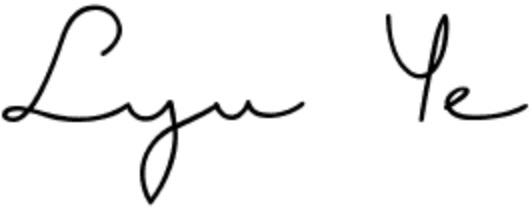 Lyu Ye